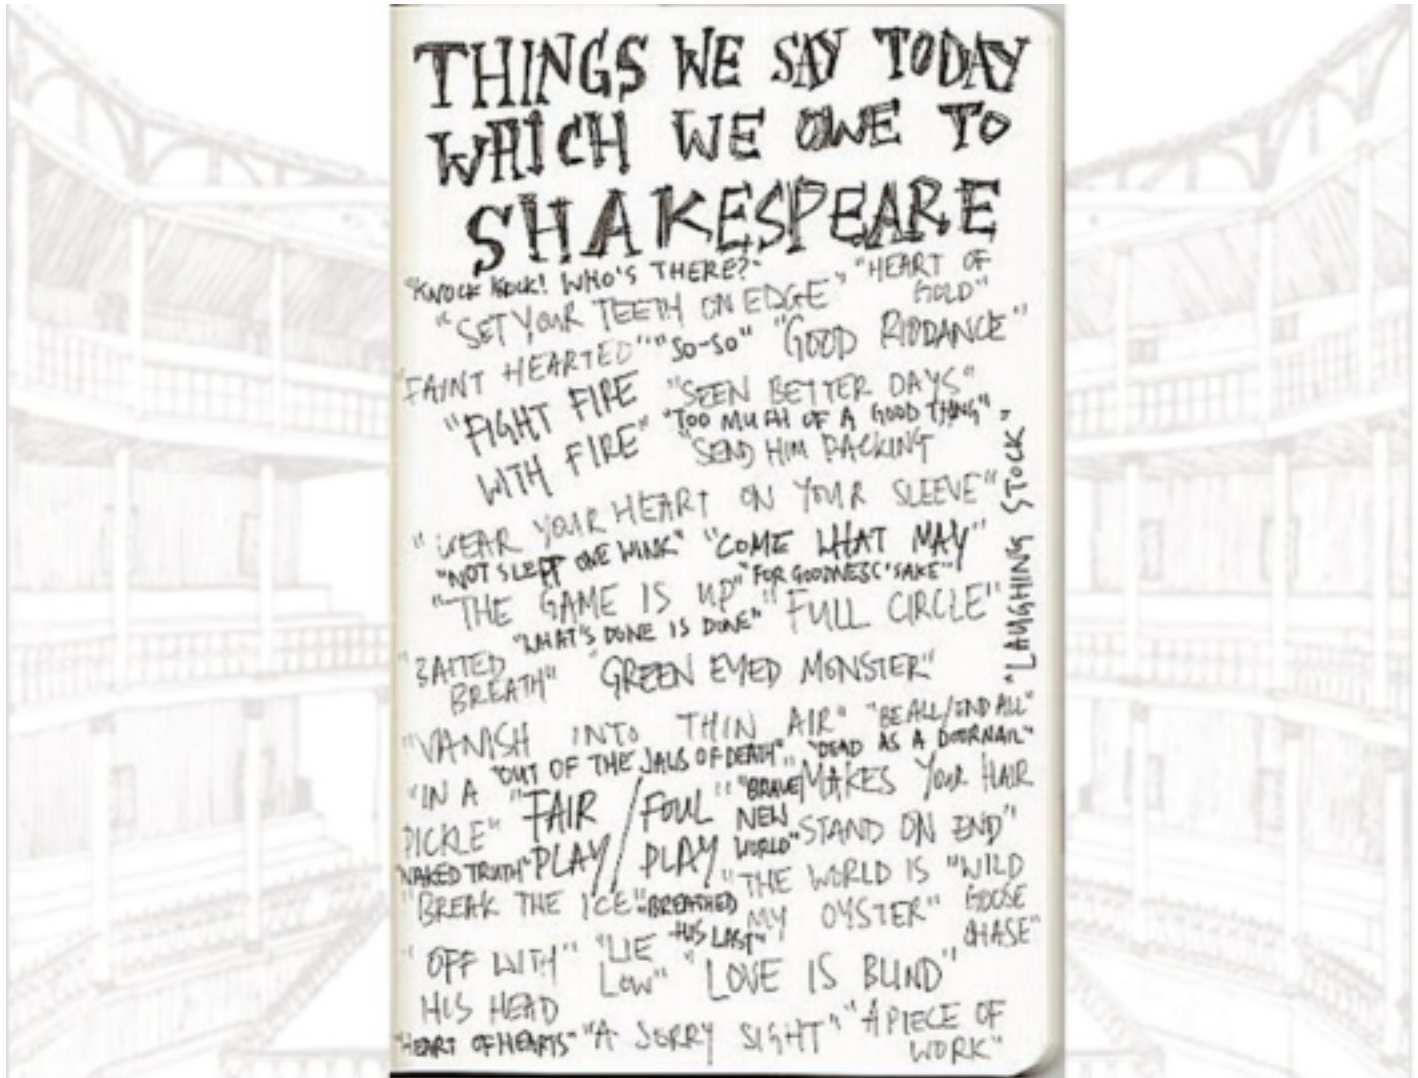 THINGS WE SAY TODAY
WHICH WE OWE TO
SHAKESPEARE
"KNOCK KNOCK! WHO'S THERE?" "HEART OF
GOLD"
"SET YOUR TEETH ON EDGE"
"FAINT HEARTED" "SO-SO" "GOOD RIDDANCE"
"FIGHT FIRE
WITH FIRE"
"SEEN BETTER DAYS"
"TOO MUCH OF A GOOD THING"
"SEND HIM PACKING
"WEAR YOUR HEART ON YOUR SLEEVE"
"LAUGHING STOCK"
"NOT SLEPT ONE WINK" "COME WHAT MAY"
"THE GAME IS UP" "FOR GOODNESS' SAKE"
"FULL CIRCLE"
"WHAT'S DONE IS DONE"
"BAITED
BREATH"
"GREEN EYED MONSTER"
"VANISH INTO THIN AIR" "BE ALL/END ALL"
"OUT OF THE JAWS OF DEATH" "DEAD AS A DOORNAIL"
"IN A
PICKLE"
"FAIR / FOUL
PLAY / PLAY
"BRAVE
NEW
WORLD"
MAKES YOUR HAIR
STAND ON END"
"NAKED TRUTH"
"BREAK THE ICE" "BREATHED
HIS LAST"
"THE WORLD IS
MY OYSTER"
"WILD
GOOSE
CHASE"
"OFF WITH"
HIS HEAD
"LIE
LOW"
"LOVE IS BLIND"
"HEART OF HEARTS" "A SORRY SIGHT" "A PIECE OF
WORK"